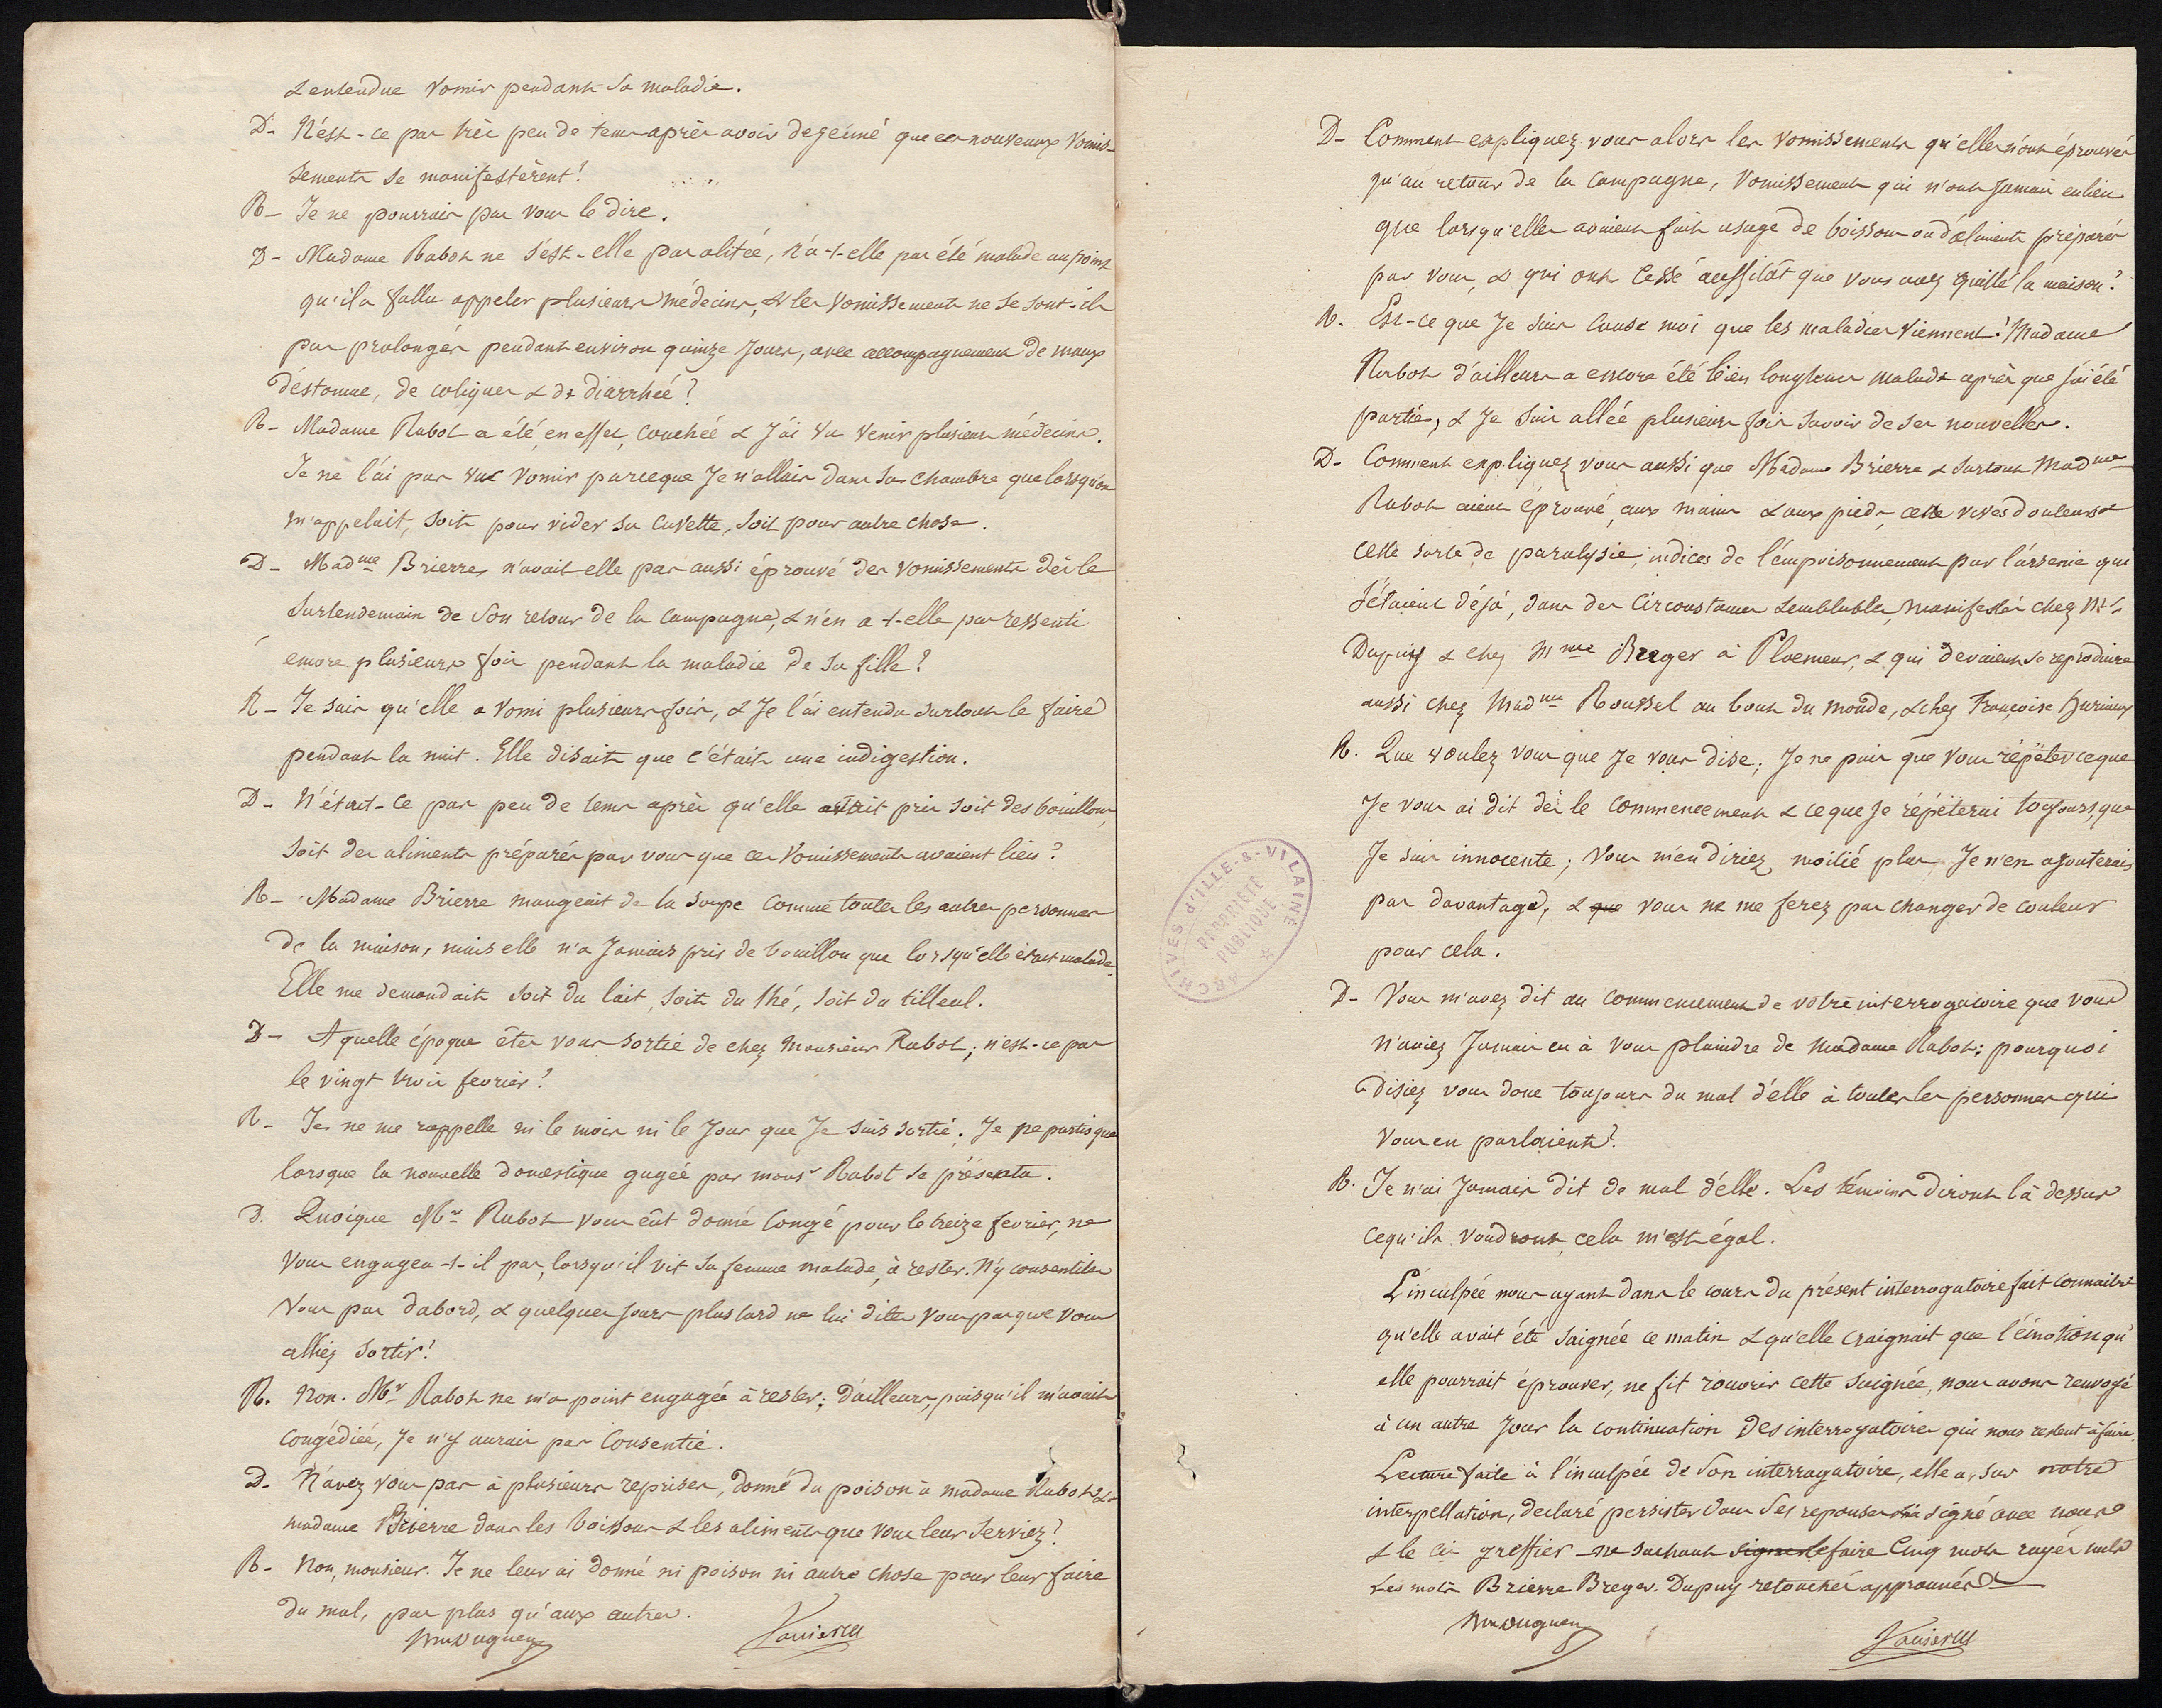 & entendue vomir pendant sa maladie.
D- N'est-ce pas très peu de tems après avoir dejeûné que ces nouveaux vomis-
sements se manifestèrent?
R- Je ne pourrais pas vous le dire.
D- Madame Rabot ne s'est-elle pas alitée, n'a-t-elle pas été malade au point
qu'il a fallu appeler plusieurs médecins, & les vomissements ne se sont-ils
pas prolongés pendant environ quinze jours, avec accompagnement de maux
d'éstomac, de coliques & de diarrheé?
R- Madame Rabot a été, en effet, couchée & j'ai vu venir plusieurs médecins.
Je ne l'ai pas vue vomir parceque je n'allais dans sa chambre que lorsqu'on
m'appelait, soit pour vider sa cuvette, soit pour autre chose.
D- Madme Brierre n'avait elle pas aussi éprouvé des vomissements dès le
surlendemain de son retour de la campagne, & n'en a-t-elle pas ressenti
encore plusieurs fois pendant la maladie de sa fille?
R- Je sais qu'elle a vomi plusieurs fois, & je l'ai entendu surtout le faire
pendant la nuit. Elle disait que c'était une indigestion.
D- N'était-ce pas peu de tems après qu'elle avait pris soit des bouillons,
soit des aliments préparés par vous que ces vomissements avaient lieu?
R- Madame Brierre mangeait de la soupe comme toutes les autres personnes
de la maison, mais elle n'a jamais pris de bouillon que lorsqu'elle était malade.
Elle me demandait soit du lait, soit du thé, soit du tilleul.
D- A quelle époque êtes vous sortie de chez monsieur Rabot; n'est-ce pas
le vingt trois fevrier?
R- Je ne me rappelle ni le mois ni le jour que je suis sortie. Je ne partis que
lorsque la nouvelle domestique gagée par monsr Rabot se présenta.
D. Quoique Mr Rabot vous eût donné congé pour le treize fevrier, ne
vous engagea-t-il pas, lorsqu'il vit sa femme malade, à rester. N'y consentites
vous pas d'abord, & quelques jours plus tard ne lui dites vous pas que vous
alliez sortir?
R. Non. Mr Rabot ne m'a point engagée à rester; d'ailleurs, puisqu'il m'avait
congédiée, je n'y aurais pas consentie.
D. N'avez vous pas à plusieurs reprises, donné du poison à madame Rabot & à
madame Brierre dans les boissons & les aliments que vous leur serviez?
R- Non, monsieur. Je ne leur ai donné ni poison ni autre chose pour leur faire
du mal, pas plus qu'aux autres.
D- Comment expliquez vous alors les vomissements qu'elles n'ont éprouvés
qu'au retour de la campagne, vomissements qui n'ont jamais eu lieu
que lorsqu'elles avaient fait usage de boissons ou d'aliments préparés
par vous, & qui ont cessé aussitôt que vous avez quitté la maison?
R. Est-ce que je suis cause moi que les maladies viennent! Madame
Rabot d'ailleurs a encore été bien longtems malade après que j'ai été
partie, & je suis allée plusieurs fois savoir de ses nouvelles.
D- Comment expliquez vous aussi que Madame Brierre & surtout Madme
Rabot aient éprouvé, aux mains & aux pieds, cette vives douleurs &
cette sorte de paralysie, indices de l'émpoisonnement par l'arsenic qui
s'étaient déjà, dans des circonstances semblables, manifestés chez Mde
Dupuy & chez Mme Breger à Ploemeur, & qui devaient se reproduire
aussi chez Madme Roussel au bout du monde, & chez Françoise Huriaux
R. Que voulez vous que je vous dise; je ne puis que vous répéter ce que
je vous ai dit dès le commencement & ce que je répéterai toujours, que
je suis innocente; vous m'en diriez moitié plus je n'en ajouterais
pas davantage, & que vous ne me ferez pas changer de couleur
pour cela.
D- Vous m'avez dit au commencement de votre interrogatoire que vous
n'aviez jamais eu à vous plaindre de madame Rabot; pourquoi
disiez vous donc toujours du mal d'elle à toutes les personnes qui
vous en parlaient?
R. Je n'ai jamais dit de mal d'elle. Les témoins diront là dessus
ce qu'ils voudront, cela m'est égal.
L'inculpée nous ayant dans le cours du présent interrogatoire fait connaître
qu'elle avait été saignée ce matin & qu'elle craignait que l'émotion qu'
elle pourrait éprouver, ne fit rouvrir cette saignée, nous avons renvoyé
à un autre jour la continuation des interrogatoires qui nous restent à faire.
Lecture faite à l'inculpée de son interrogatoire, elle a, sur notre
interpellation, declaré persister dans ses reponses & a signé avec nous
& le dit greffier ne sachant signer le faire Cinq mots rayés nuls
Les mots Brierre Breger. Dupuy retouchés approuvés
ARCHIVES d'ILLE-&-VILAINE
PROPRIÉTÉ
PUBLIQUE